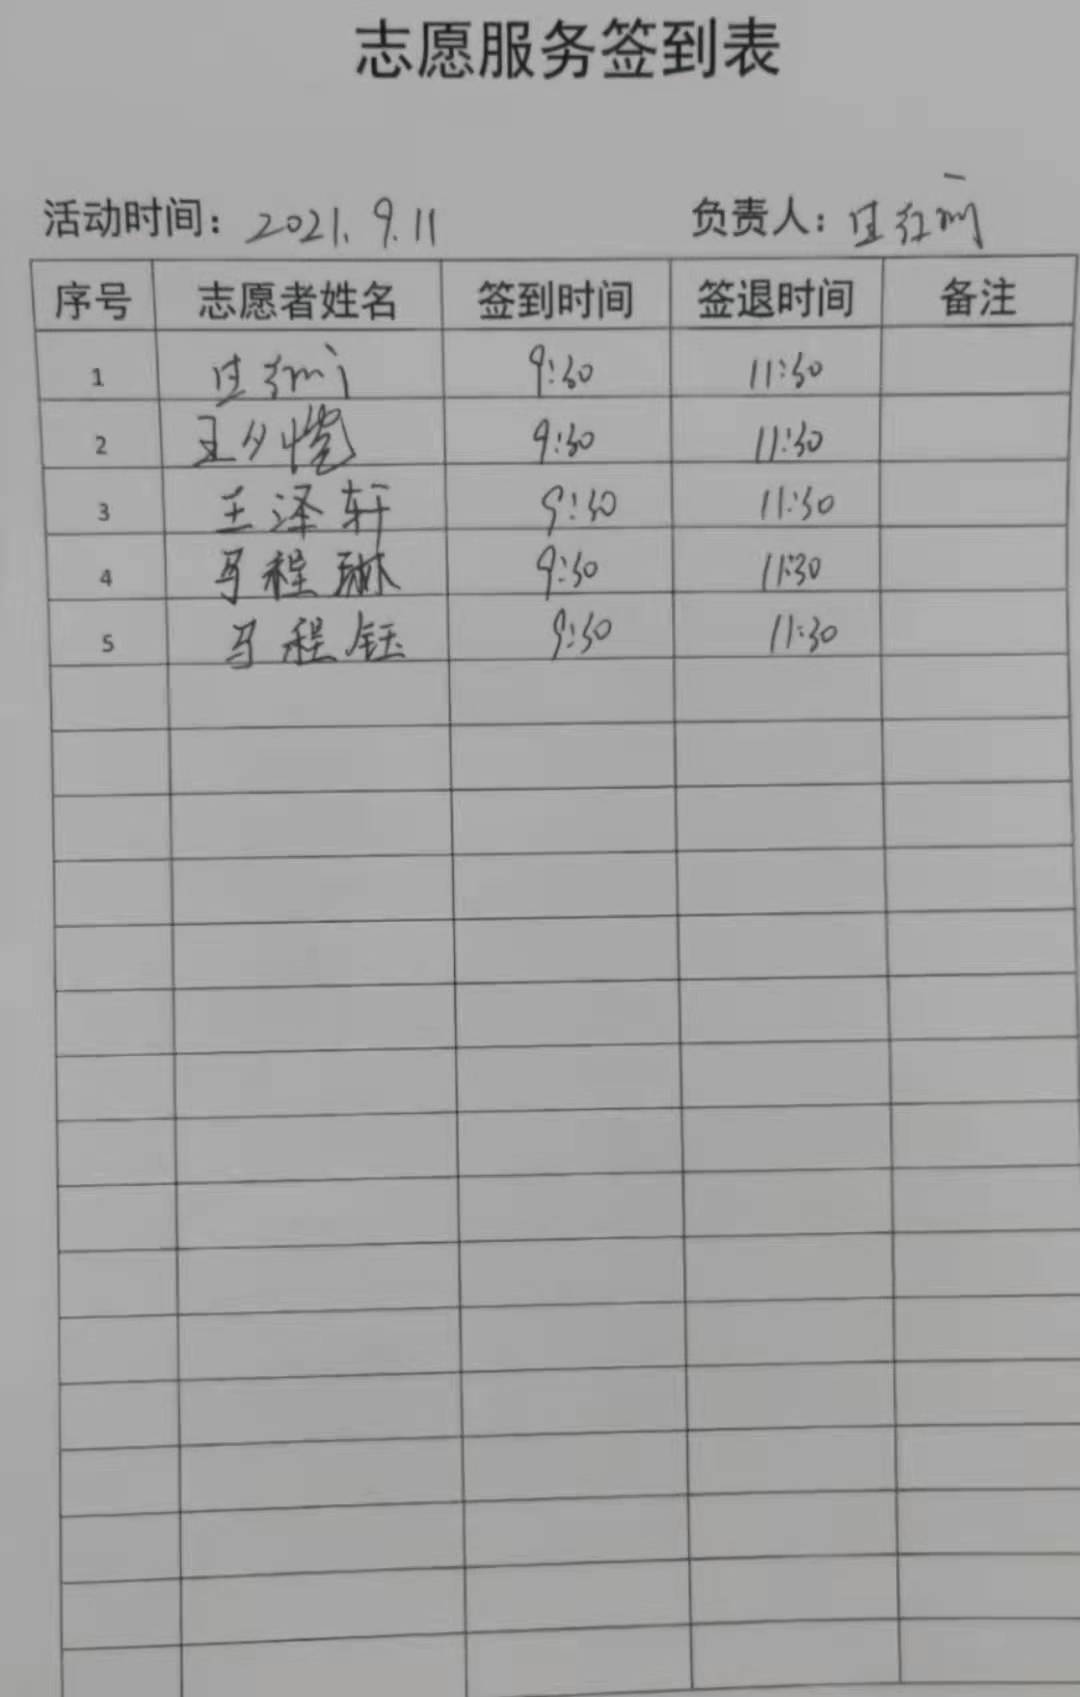 志愿服务签到表
活动时间: 2021.9.11 负责人:
序号 志愿者姓名 签到时间 签退时间 备注
1 9:30 11:30
2 王夕 9:30 11:30
3 王泽轩 9:30 11:30
4 马程琳 9:30 11:30
5 马程钰 9:30 11:30